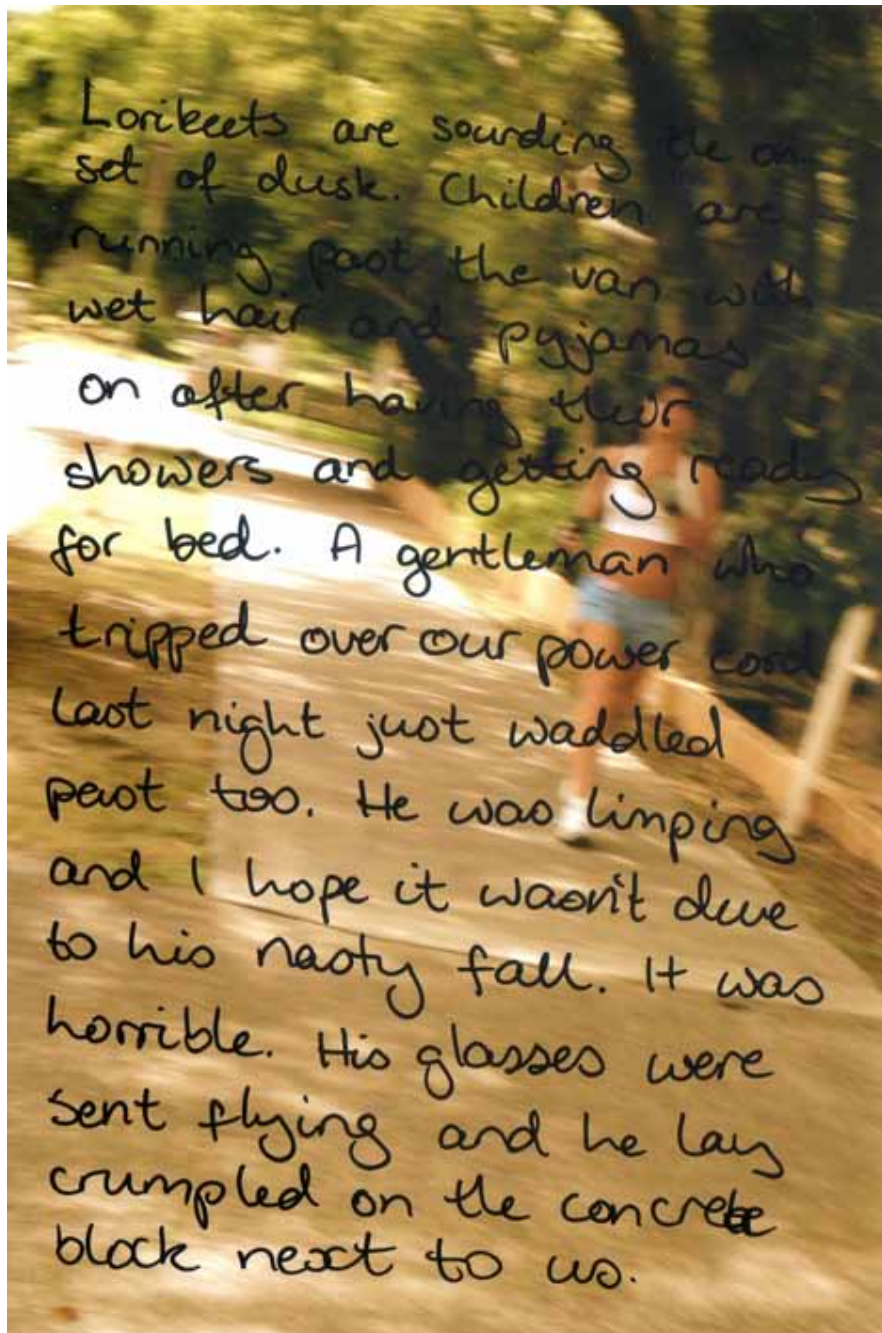 Lorikeets are sounding the on
set of dusk. Children are
running past the van with
wet hair and pyjamas
on after having their
showers and getting ready
for bed. A gentleman who
tripped over our power cord
last night just waddled
past too. He was limping
and I hope it wasn't due
to his nasty fall. It was
horrible. His glasses were
sent flying and he lay
crumpled on the concrete
block next to us.